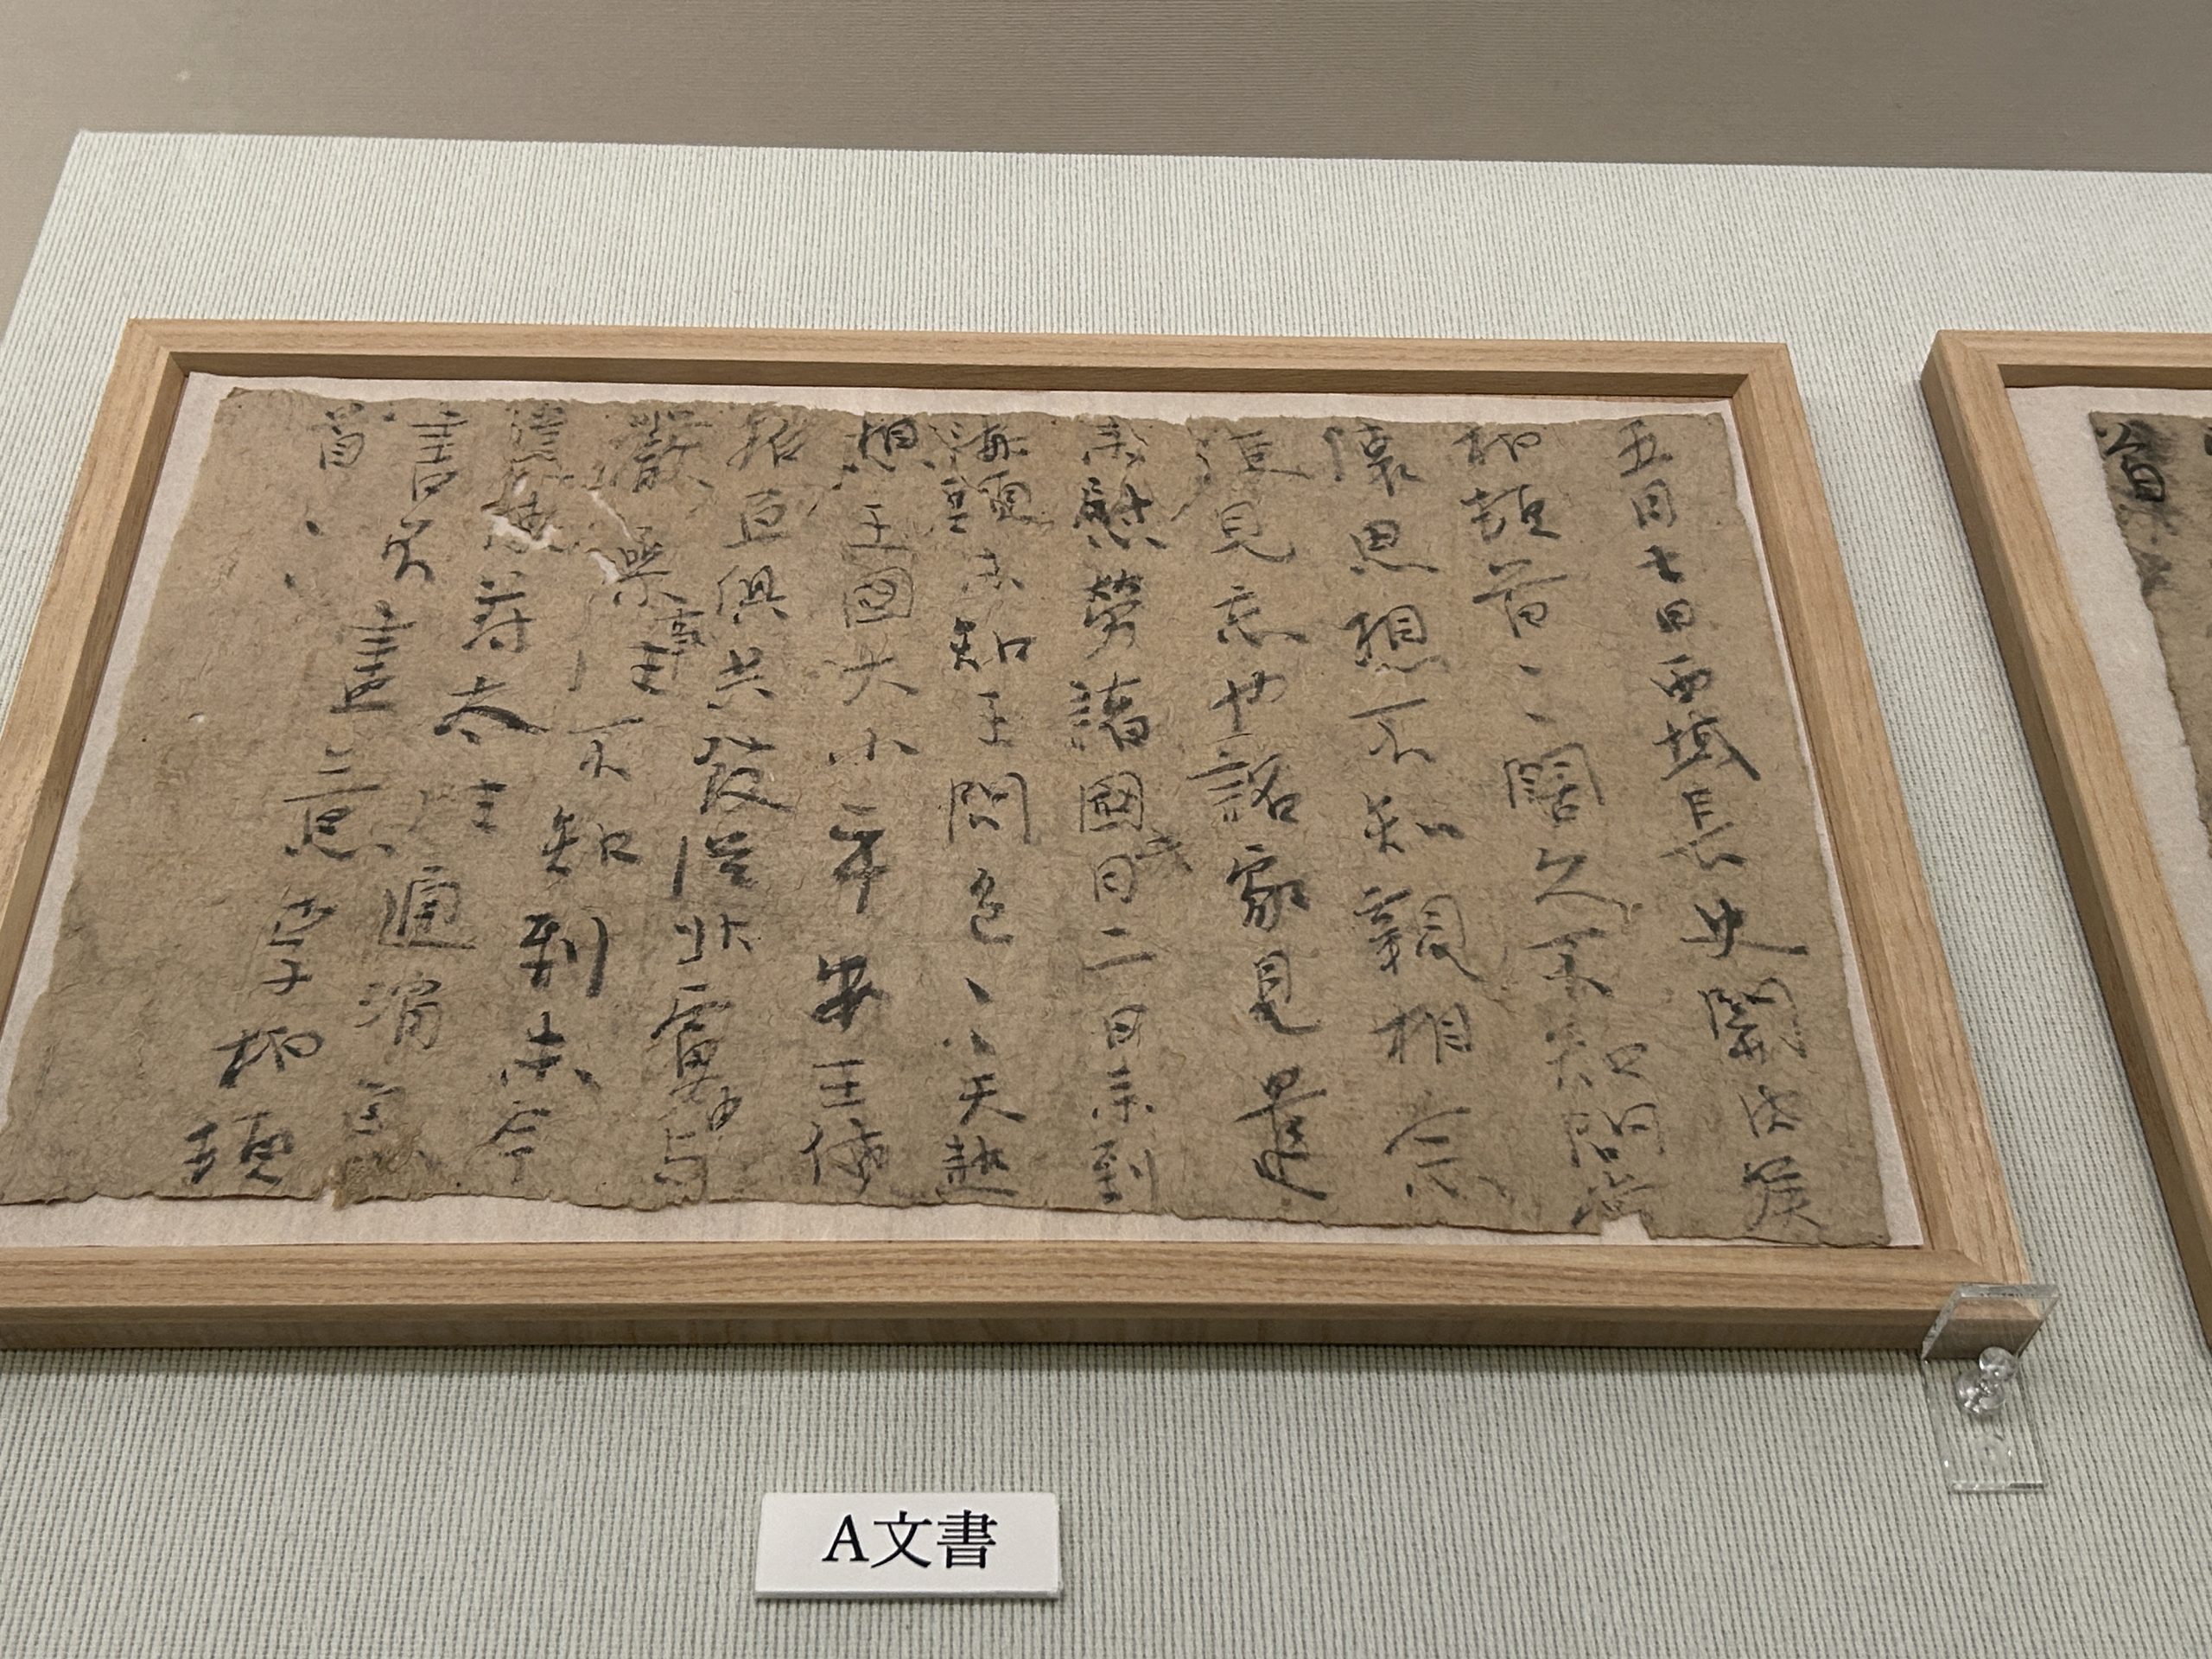 五月七日西域長史關内侯
柏頓首、、闊久不知問常
懷思想不知親相念
便見忘也詔家見遣
來慰勞諸國月二日來到此
海頭未知王問邑、、天熱
想王國大小平安王使
招亘俱共發從北虜中與
嚴參事往不知到未今
遣使苻太往通消息
書不盡意李柏頓
首、、
A文書